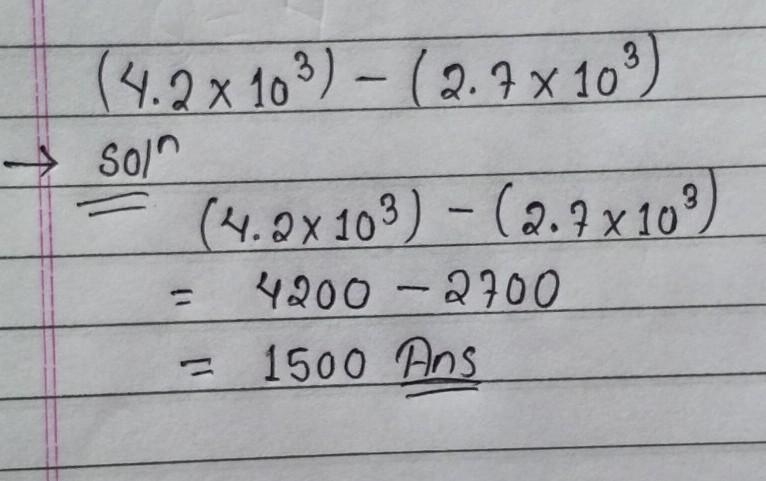 (4.2 × 10³) − (2.7 × 10³)
→ Solⁿ
(4.2 × 10³) − (2.7 × 10³)
= 4200 − 2700
= 1500 Ans